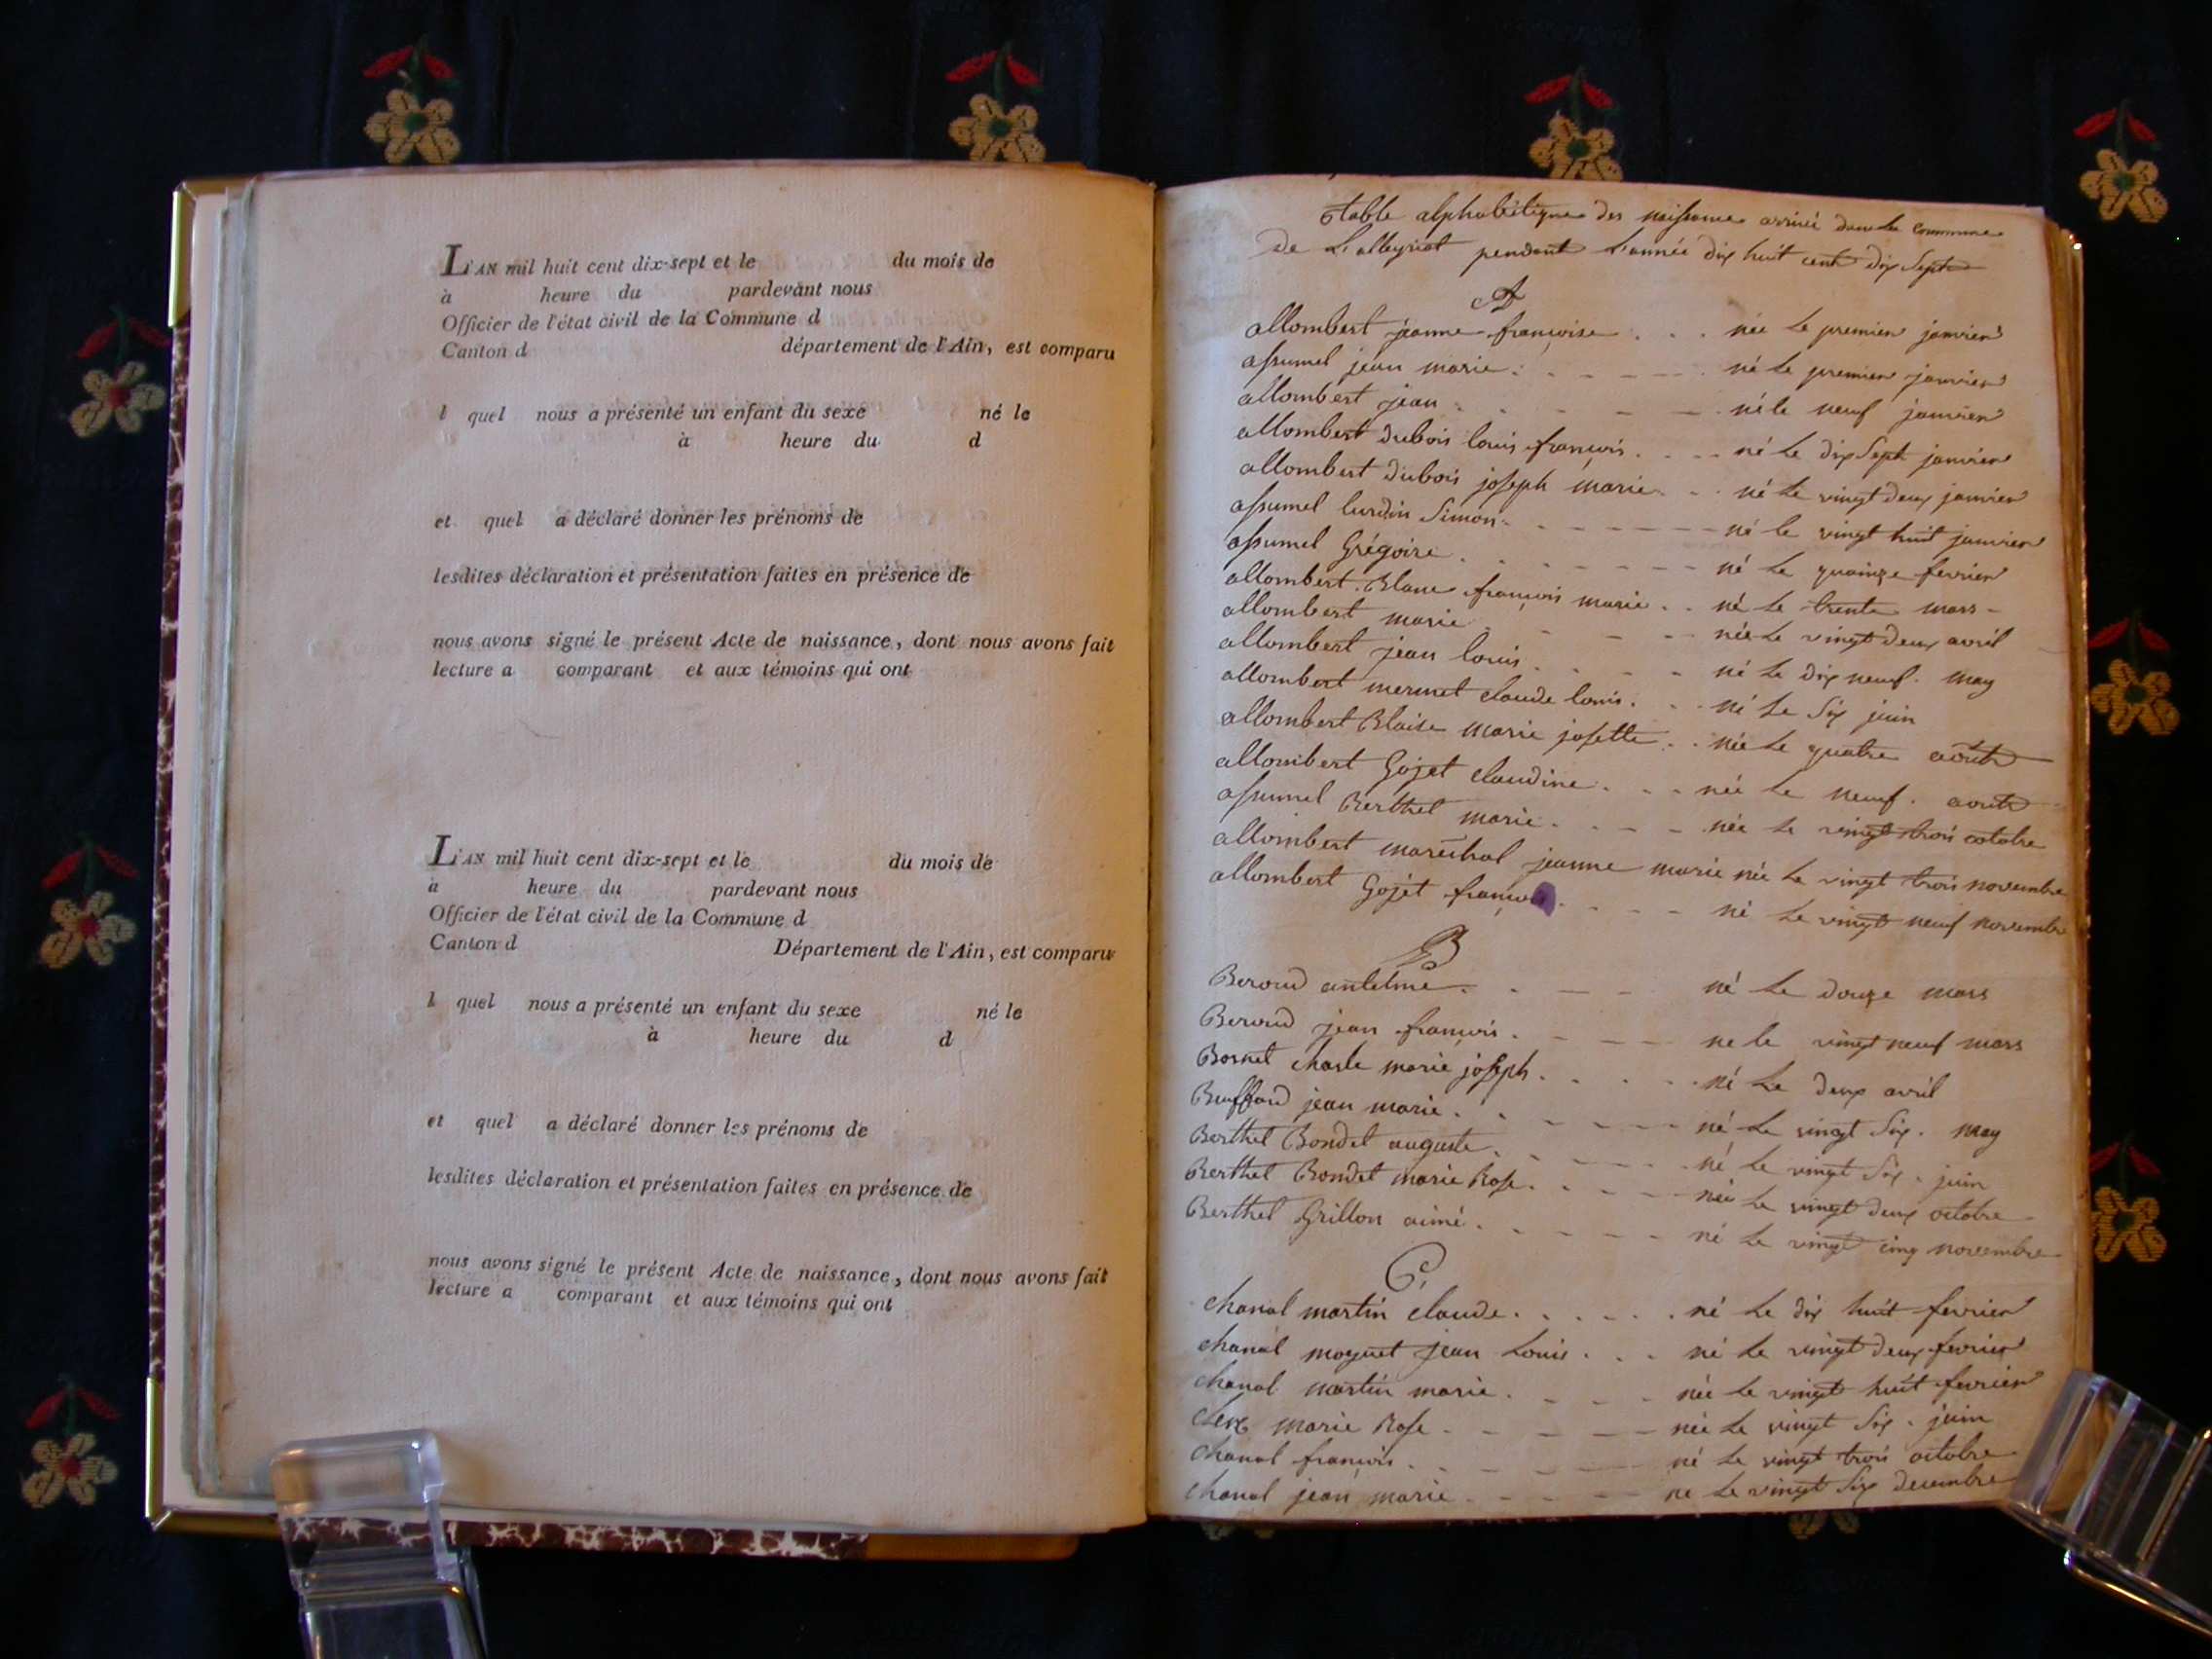 L'AN mil huit cent dix-sept et le du mois de
à heure du pardevant nous
Officier de l'état civil de la Commune d
Canton d département de l'Ain, est comparu
l quel nous a présenté un enfant du sexe né le
à heure du d
et quel a déclaré donner les prénoms de
lesdites déclaration et présentation faites en présence de
nous avons signé le présent Acte de naissance, dont nous avons fait
lecture a comparant et aux témoins qui ont
L'AN mil huit cent dix-sept et le du mois de
à heure du pardevant nous
Officier de l'état civil de la Commune d
Canton d Département de l'Ain, est comparu
l quel nous a présenté un enfant du sexe né le
à heure du d
et quel a déclaré donner les prénoms de
lesdites déclaration et présentation faites en présence de
nous avons signé le présent Acte de naissance, dont nous avons fait
lecture a comparant et aux témoins qui ont
table alphabétique des naissance arrivé dans la Commune
de L'alleyriat pendant l'année dix huit cent dix sept
A
allombert jeanne françoise . . . née le premier janvier
assumel jean marie . . . né le premier janvier
allombert jean . . . né le neuf janvier
allombert dubois louis françois . . . né le dix Sept janvier
allombert dubois joseph marie . . . né le vingt deux janvier
assumel lurdin Simon . . . né le vingt huit janvier
assumel Grégoire . . . né le quinze fevrier
allombert Blanc françois marie . . né le trente mars
allombert marie . . . née le vingt deux avril
allombert jean louis . . . né le dix neuf may
allombert mermet claude louis . . . né le Six juin
allombert Blaise marie josette . . née le quatre août
allombert Gojet claudine . . . née le neuf août
assumel Berthet marie . . . née le vingt trois octobre
allombert maréchal jeanne marie née le vingt trois novembre
allombert Gojet françois . . . né le vingt neuf novembre
B
Beroud antelme . . . né le douze mars
Beroud jean françois . . . ne le vingt neuf mars
Bornet charle marie joseph . . . né le deux avril
Buffard jean marie . . . né le vingt Six may
Berthet Bondet auguste . . . né le vingt Six juin
Berthet Bondet marie Rose . . . née le vingt deux octobre
Berthet Grillon aimé . . . né le vingt cinq novembre
C
chanal martin claude . . . né le dix huit fevrier
chanal moyret jean Louis . . . né le vingt deux fevrier
chanal martin marie . . . née le vingt huit fevrier
marie Rose . . . née le vingt Six juin
chanal françois . . . né le vingt trois octobre
chanal jean marie . . . ne le vingt Six decembre